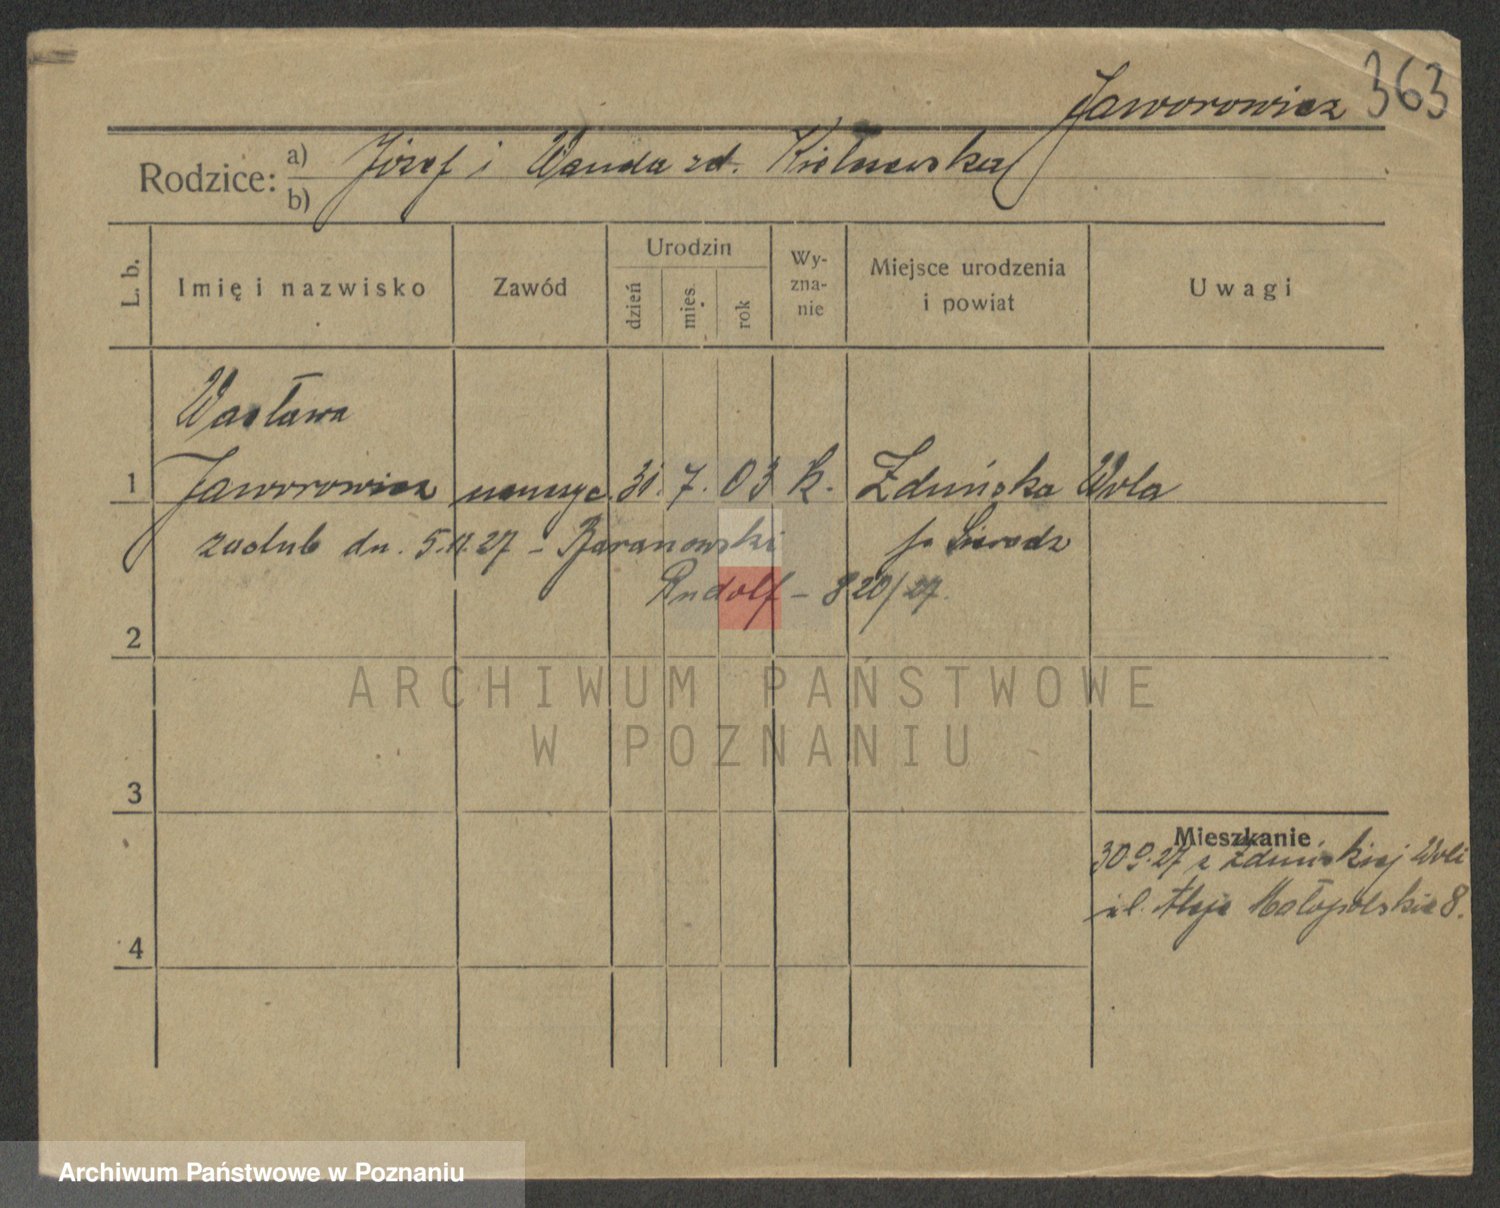 363
Jaworowicz
Rodzice: a) Józef i Wanda zd.
b)
L. b.
Imię i nazwisko
Zawód
Urodzin
dzień
mies.
rok
Wy-
zna-
nie
Miejsce urodzenia
i powiat
Uwagi
Wacława
1 Jaworowicz nauczyc. 31. 7. 03 k. Zduńska Wola
zaślub dn. 5.11.27 – Baranowski p. Sieradz
Rudolf – 820/27.
2
3
4
Mieszkanie
30.9.27 z Zduńskiej Woli
ul. Aleje Małopolskie 8.
ARCHIWUM PAŃSTWOWE
W POZNANIU
Archiwum Państwowe w Poznaniu